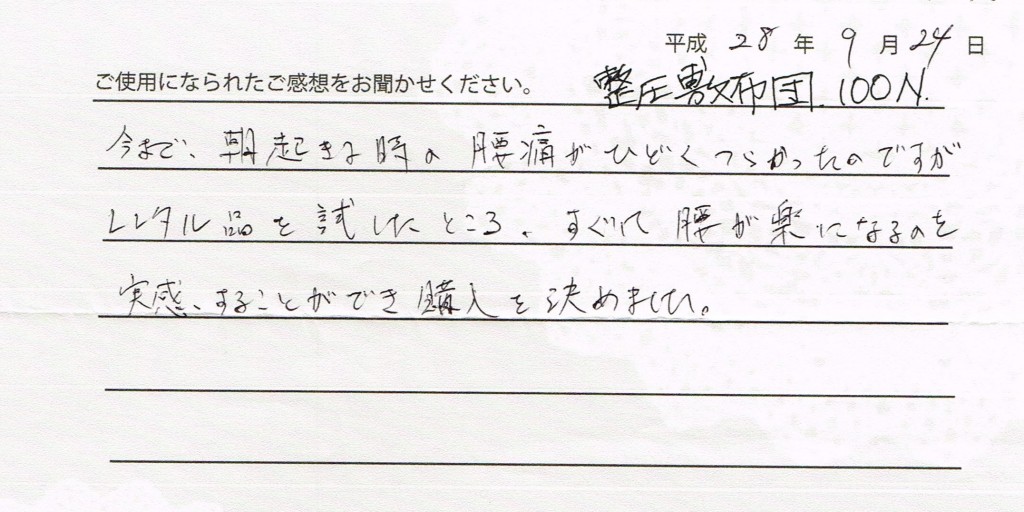 平成 28 年 9 月 24 日
ご使用になられたご感想をお聞かせください。 整圧敷布団.100N.
今まで、朝起きる時の腰痛がひどくつらかったのですが
レンタル品を試したところ、すぐに腰が楽になるのを
実感、することができ購入を決めました。